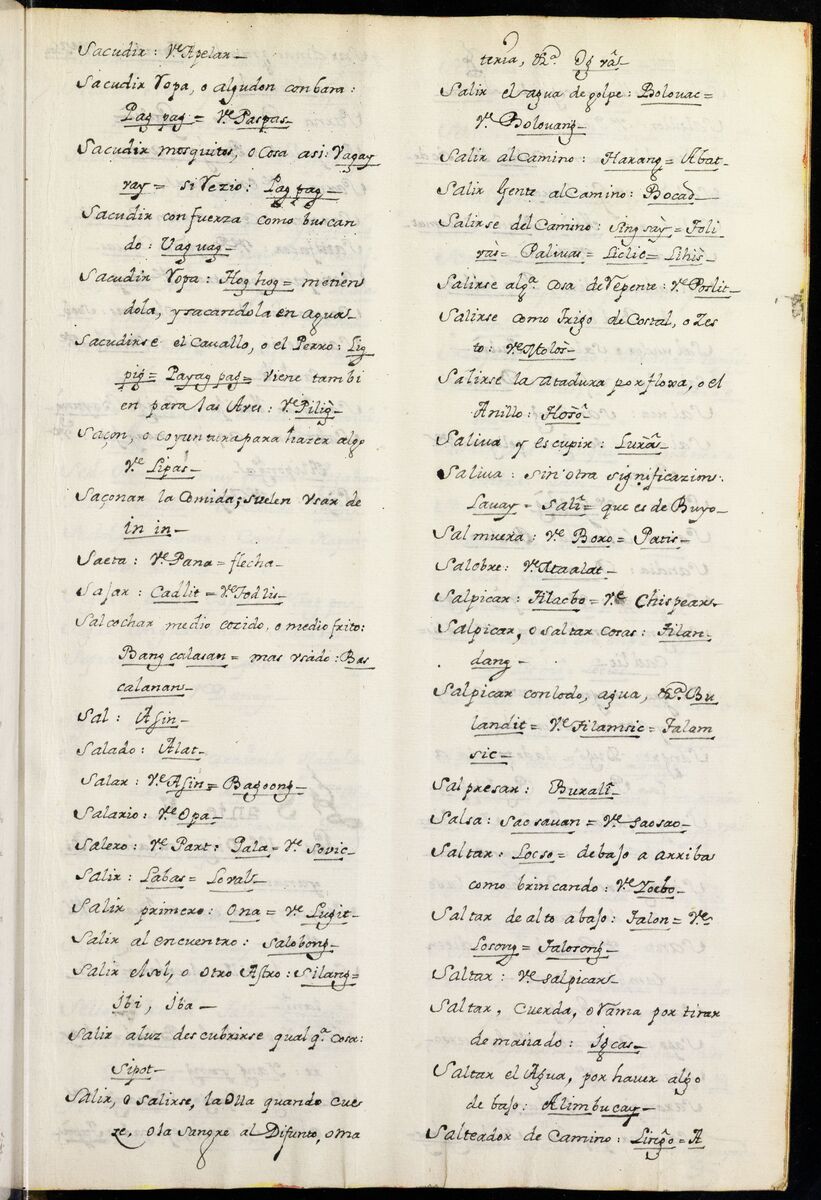 Sacudir: Vᵉ Apelar_
Sacudir Vopa, o algudon conbara:
Pag pag = Vᵉ Paspas_
Sacudir mosquitos, o Cosa asi: Vagay
vay = si Vezio: Pag pag_
Sacudir confuerza como buscan
do: Uag uag_
Sacudir Vopa: Hog hog = metien
dola, y sacandola en agua_
Sacudirse el Cauallo, o el Perro: Lig
pig = Payag pag = viene tambi
en para las Aves: Vᵉ Pilig_
Saçon, o coyuntura para hazer algo
Vᵉ Lipas_
Saçonar la Comida; suelen Vsar de
in in_
Saeta: Vᵉ Pana = flecha_
Sajar: Cadlit = Vᵉ Todlis_
Salcochar medio cozido, o medio frito:
Bang calasan = mas vsado: Bas
calanan_
Sal: Asin_
Salado: Alat_
Salar: Vᵉ Asin = Bagoong_
Salario: Vᵉ Opa_
Salero: Vᵉ Part: Pala = Vᵉ Sovic_
Salir: Labas = Loval_
Salir primero: Ona = Vᵉ Lugit_
Salir al encuentro: Salobong_
Salir el sol, o otro Astro: Silang =
ibi, iba_
Salir a luz descubrirse qualqᵃ cosa:
Sipot_
Salir, o Salirse, la Olla quando cue
ze, o la sangre al Difunto, o ma
teria, &ᵃ. Ig vâs
Salir el agua de golpe: Bolouac =
Vᵉ Bolouang_
Salir al Camino: Harang = Abat_
Salir Gente al Camino: Bocad_
Salirse del Camino: Sing sày = Toli
vàs = Palivas = Liclic = Lihìs_
Salirse algᵃ. Cosa de Vepente: Vᵉ Poslit_
Salirse como Trigo de Costal, o Zes
to: Vᵉ Atolòs_
Salirse la atadura por floxa, o el
Anillo: Hosô_
Saliua y escupir: Lurâ_
Saliua: sin otra significazion:
Lauay = Salî = que es de Buyo_
Salmuera: Vᵉ Boro = Patis_
Salobre: Vᵉ Ataalat_
Salpicar: Tilacbo = Vᵉ Chispear_
Salpicar, o saltar cosas: Tilan
dang_
Salpicar con lodo, agua, &ᵃ. Bu
landit = Vᵉ Tilamsic = Talam
sic_
Salpresar: Buralî_
Salsa: Sao sauan = Vᵉ Saosao_
Saltar: Locso = debajo a arriba
como brincando: Vᵉ Zocbo_
Saltar de alto abajo: Talon = Vᵉ
Losong = Talosong_
Saltar: Vᵉ salpicar_
Saltar, Cuerda, o Vama por tirar
de masiado: Igcas_
Saltar el Agua, por haver algo
de bajo: Alimbucay_
Salteador de Camino: Ligo = A